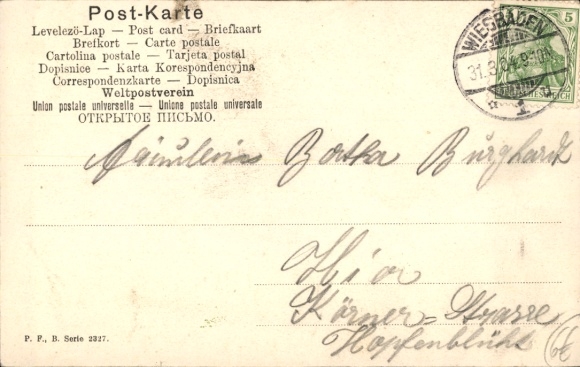 Post-Karte
Levelező-Lap — Post card — Briefkaart
Brefkort — Carte postale
Cartolina postale — Tarjeta postal
Dopisnice — Karta Korespondencyjna
Correspondenzkarte — Dopisnica
Weltpostverein
Union postale universelle — Unione postale universale
ОТКРЫТОЕ ПИСЬМО.
WIESBADEN
31.3.04
1
5
Fräulein Bertha Burghardt
Hier
Körner-Strasse
Hopfenblüht
P. F., B. Serie 2327.